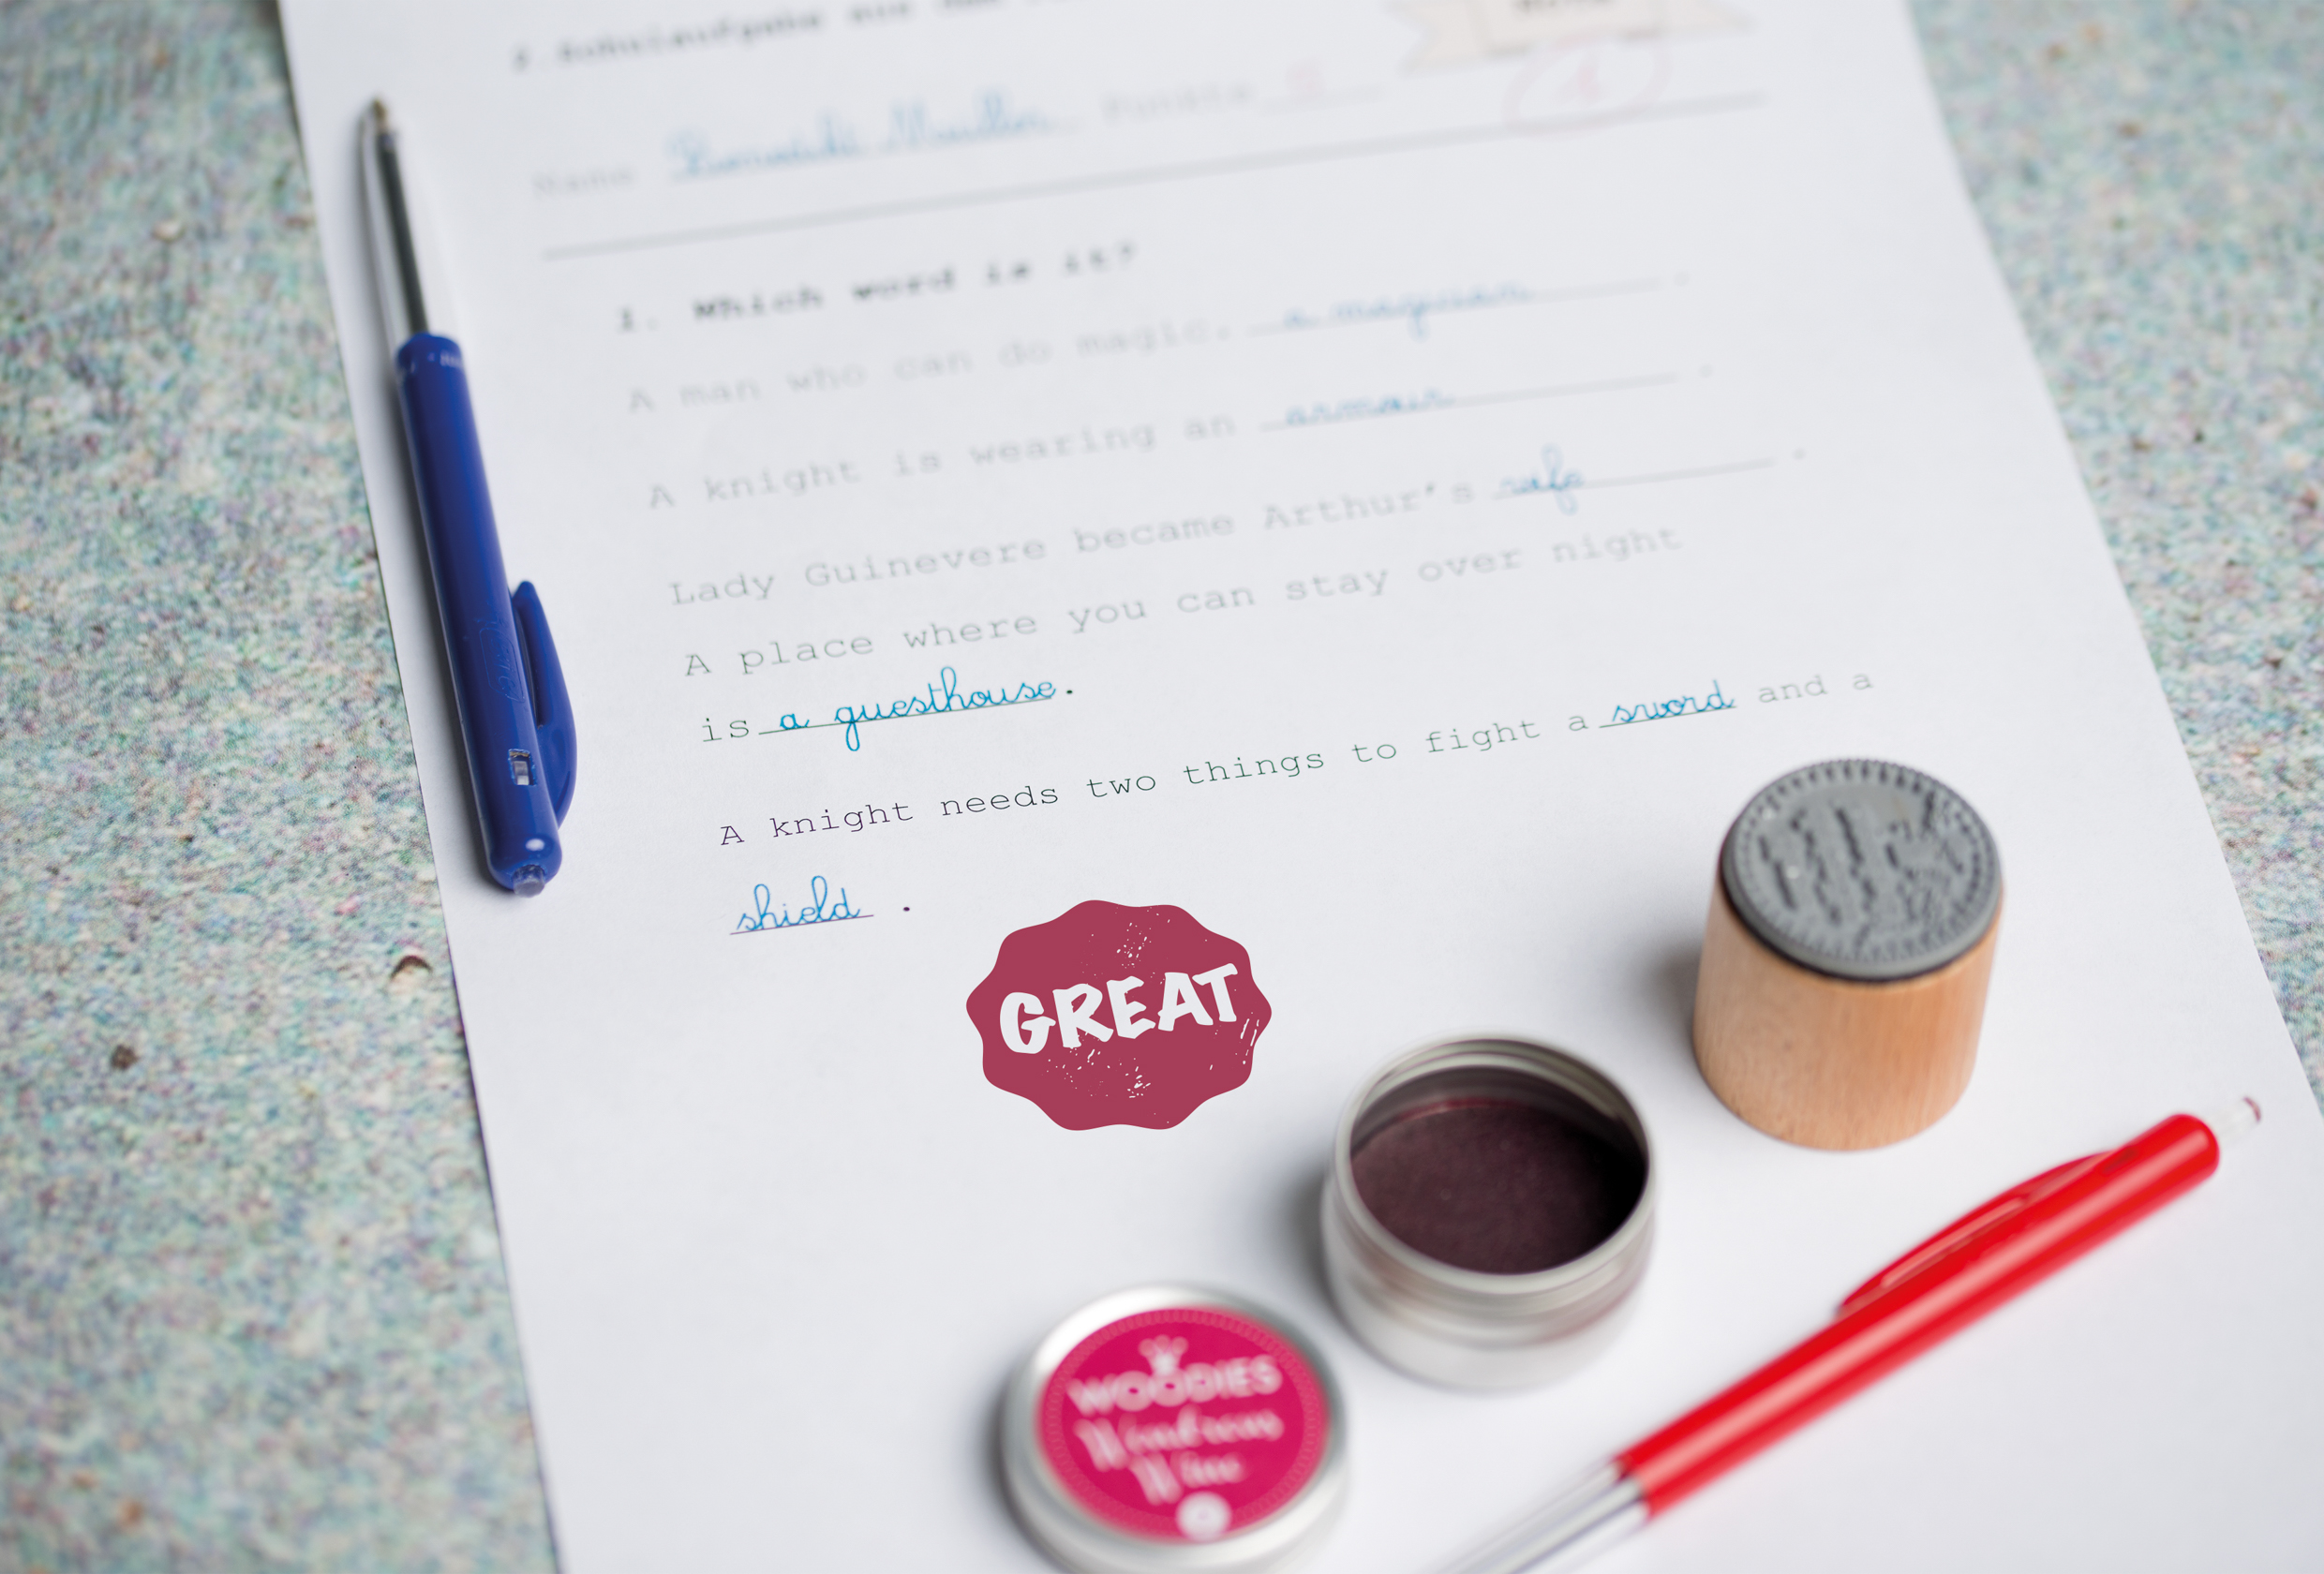 2.Schulaufgabe aus dem
Name Punkte
1. Which word is it?
A man who can do magic. a magician .
A knight is wearing an armour .
Lady Guinevere became Arthur's wife .
A place where you can stay over night
is a guesthouse.
A knight needs two things to fight a sword and a
shield .
GREAT
WOODIES
Wondrous
Wine